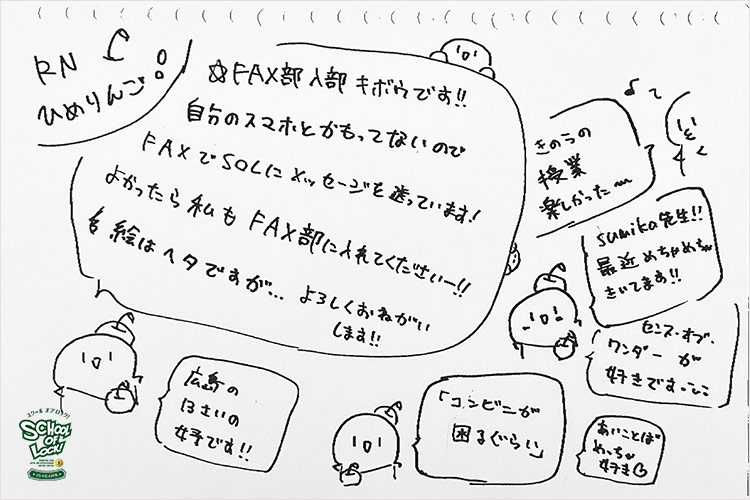 RN
ひめりんご
☆FAX部入部キボウです!!
自分のスマホとかもってないので
FAXでSOLにメッセージを送っています!
よかったら私もFAX部に入れてくださいー!!
絵はヘタですが… よろしくおねがい
します!!
きのうの
授業
楽しかった〜
sumika先生!!
最近めちゃめちゃ
きいてます!!
センス・オブ・
ワンダーが
好きです
広島の
13さいの
女子です!!
「コンビニが
困るぐらい」
あいことば
めっちゃ
好き
スクール オブ ロック!
SCHOOL
OF
LOCK!